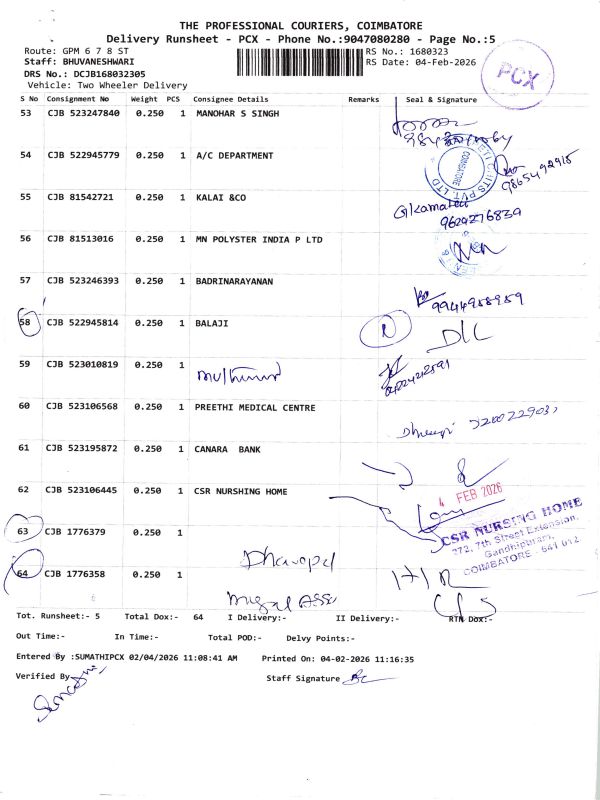 THE PROFESSIONAL COURIERS, COIMBATORE
Delivery Runsheet - PCX - Phone No.:9047080280 - Page No.:5
Route: GPM 6 7 8 ST RS No.: 1680323
Staff: BHUVANESHWARI RS Date: 04-Feb-2026
DRS No.: DCJB168032305
Vehicle: Two Wheeler Delivery
PCX
S No Consignment No Weight PCS Consignee Details Remarks Seal & Signature
53 CJB 523247840 0.250 1 MANOHAR S SINGH
54 CJB 522945779 0.250 1 A/C DEPARTMENT
COIMBATORE
9865492915
55 CJB 81542721 0.250 1 KALAI &CO
9629276839
56 CJB 81513016 0.250 1 MN POLYSTER INDIA P LTD
57 CJB 523246393 0.250 1 BADRINARAYANAN
9944958959
58 CJB 522945814 0.250 1 BALAJI R D/L
59 CJB 523010819 0.250 1
60 CJB 523106568 0.250 1 PREETHI MEDICAL CENTRE
61 CJB 523195872 0.250 1 CANARA BANK
62 CJB 523106445 0.250 1 CSR NURSHING HOME
4 FEB 2026
CSR NURSING HOME
272, 7th Street Extension,
Gandhipuram,
COIMBATORE - 641 012
63 CJB 1776379 0.250 1
64 CJB 1776358 0.250 1
Tot. Runsheet:- 5 Total Dox:- 64 I Delivery:- II Delivery:- RTN Dox:-
Out Time:- In Time:- Total POD:- Delvy Points:-
Entered By :SUMATHIPCX 02/04/2026 11:08:41 AM Printed On: 04-02-2026 11:16:35
Verified By Staff Signature